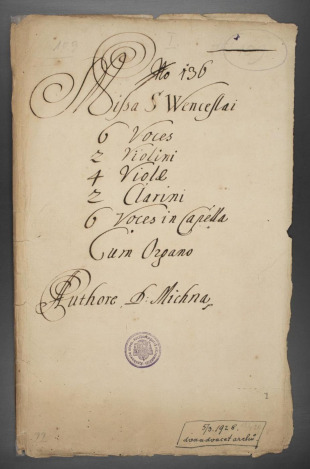 No 136
Missa S Wenceslai
6 Voces
2 Violini
4 Violæ
2 Clarini
6 Voces in Capella
Cum Organo
Authore D: Michna